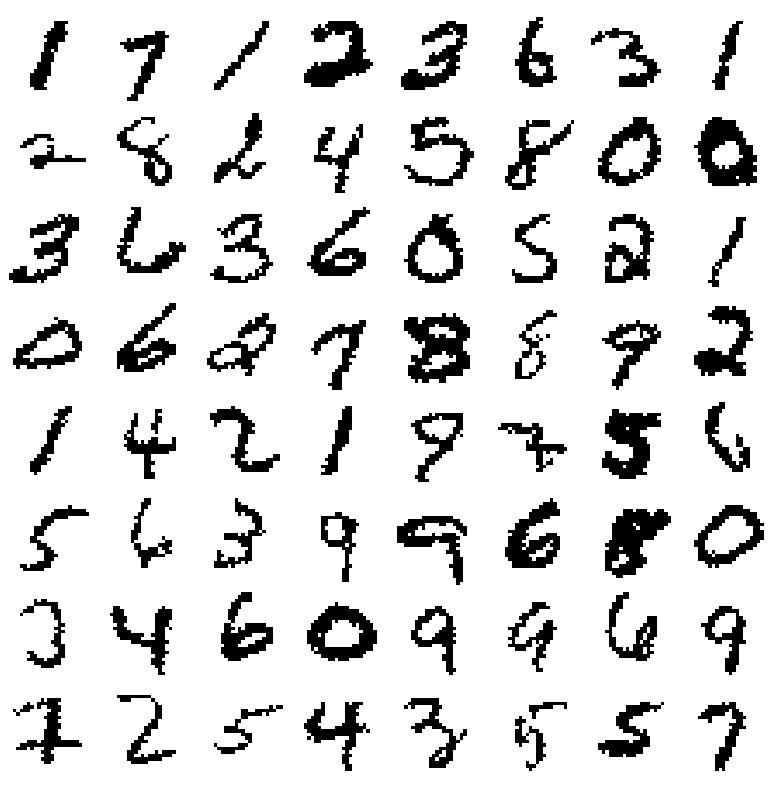 1 7 1 2 3 6 3 1
2 8 2 4 5 8 0 0
3 6 3 6 0 5 2 1
0 6 2 7 8 8 9 2
1 4 2 1 9 2 5 6
5 6 3 9 9 6 8 0
3 4 6 0 9 9 6 9
7 2 5 4 3 5 5 7